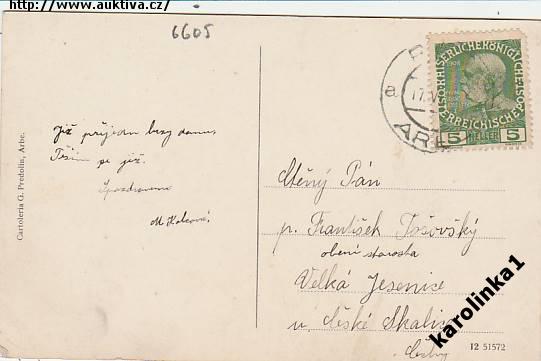 http://www.auktiva.cz/
6605
Již přijedu brzy domu,
Těším se již.
S pozdravem
M
Cartoleria G. Predolin, Arbe.
a
17.V
AR
KAISERLICHE KÖNIGLICHE
ÖSTERREICHISCHE POST
1908
5 HELLER 5
Ctěný Pán
p. František Tošovský
obecní starosta
Velká Jesenice
u české Skalice
Čechy
12 51572
karolinka1